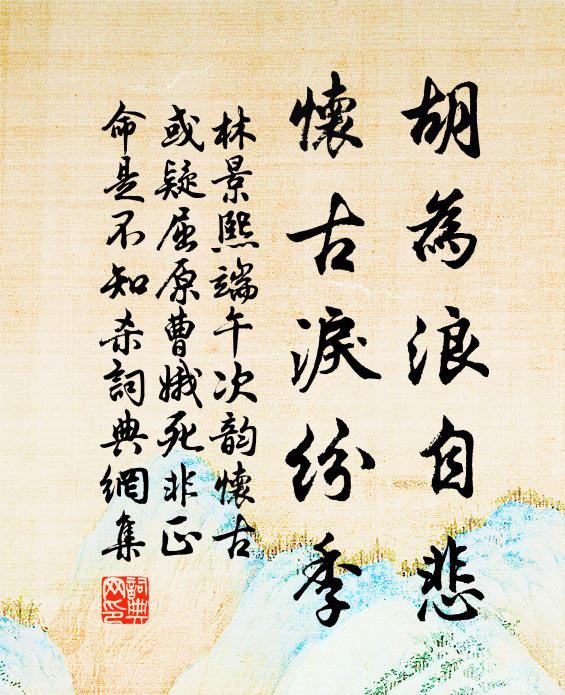 胡為浪自悲
懷古淚紛季
林景熙端午次韵懷古
或疑屈原曹娥死非正
命是不知杀詞典網集
詞典網印